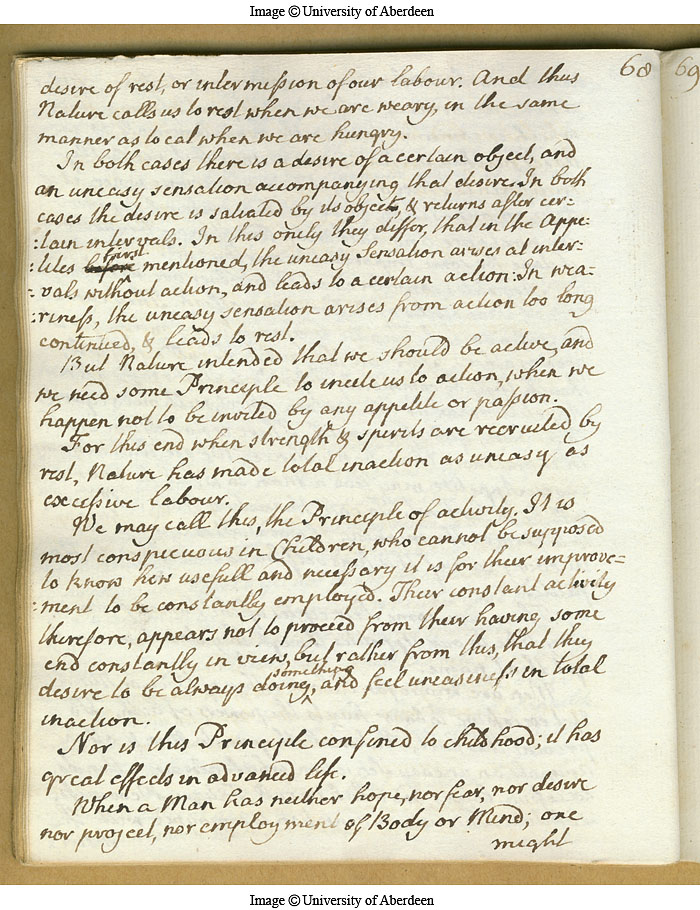 Image © University of Aberdeen
68
69
desire of rest, or intermission of our labour. And thus
Nature calls us to rest when we are weary, in the same
manner as to eat when we are hungry.
In both cases there is a desire of a certain object, and
an uneasy sensation accompanying that desire. In both
cases the desire is satiated by its object, & returns after cer-
:tain intervals. In this only they differ, that in the Appe:
:tites before first mentioned, the uneasy Sensation arises at inter-
:vals without action, and leads to a certain action: In wea-
:riness, the uneasy sensation arises from action too long
continued, & leads to rest.
But Nature intended that we should be active, and
we need some Principle to incite us to action, when we
happen not to be invited by any appetite or passion.
For this end when strength & spirits are recruited by
rest, Nature has made total inaction as uneasy as
excessive labour.
We may call this, the Principle of activity. It is
most conspicuous in Children, who cannot be supposed
to know how usefull and necessary it is for their improve=
:ment to be constantly employed. Their constant activity
therefore, appears not to proceed from their having some
end constantly in view, but rather from this, that they
desire to be always doing something, and feel uneasiness in total
inaction.
Nor is this Principle confined to childhood; it has
great effects in advanced life.
When a Man has neither hope, nor fear, nor desire
nor project, nor employment of Body or Mind; one
might
Image © University of Aberdeen